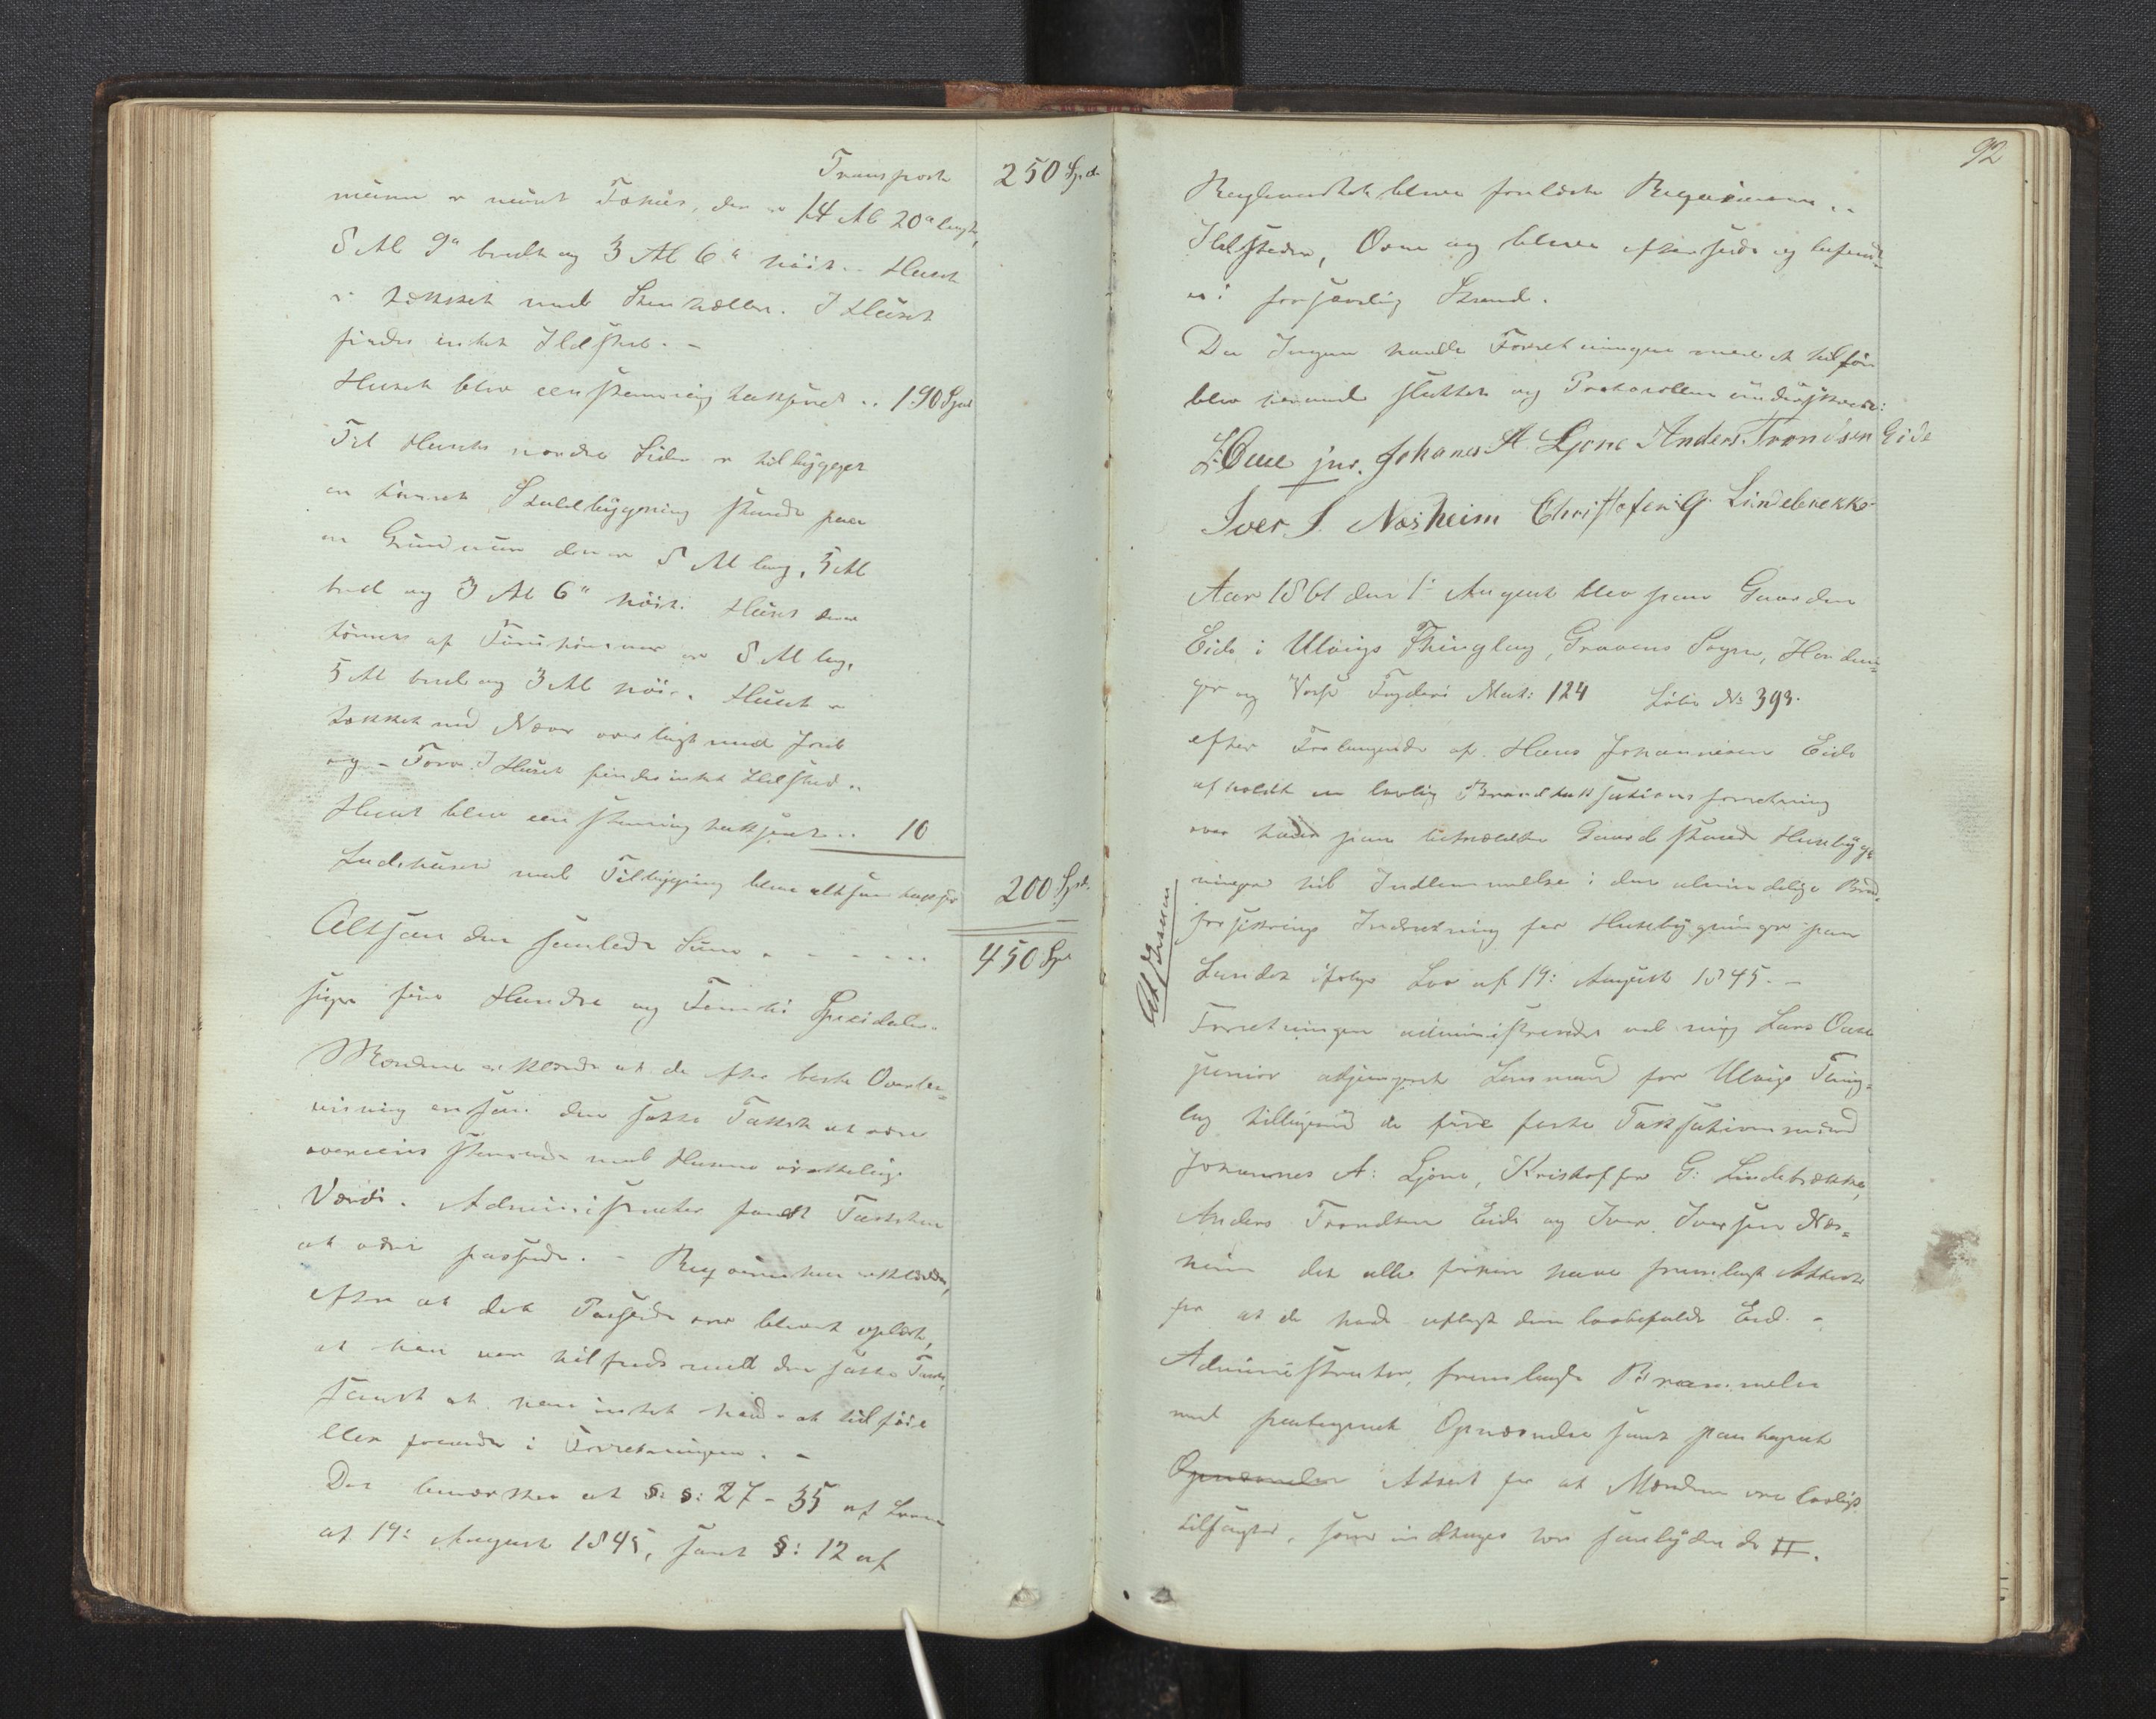 Transport 250 Spd.
muur er muret Fæhus, der er 14 Al 20" langt,
8 Al 9" bredt og 3 Al 6" höit. Huset
er tækket med Steenhæller. I Huset
findes intet Ildsted. -
Huset blev eenstemmig taxseret .. 190 Spd
Til Husets nordre Side er tilbygget
en tömret Staldbygning staaende paa
en Grundmuur der er 8 Al lang, 5 Al
bred og 3 Al 6" höi. Huset der er
tömret af Furutömmer er 8 Al lang,
5 Al bred og 3 Al höi. Huset er
tækket med Næver overlagt med Jord
og Torv. I Huset findes intet Ildsted ..
Huset blev eenstemmig taxseret .. 10
Ladehuset med Tilbygging blev altsaa taxseret 200 Spd.
Altsaa den samlede Sum . - - - - - 450 Spd
siger fire Hundre og Femti Speciedaler.
Mændene erklærede at de efter beste Overbe-
viisning ansaa den satte Taxst at være
overeensstemmende med Husenes virkelige
Værdi. Administrator fandt Taxsten
at være passende. - Reqvirenten erklærede,
efter at det Passerede var blevet oplæst,
at han var tilfreds med den satte Taxst,
samt at han intet havde at tilföie
eller forandre i Forretningen. -
Der bemærkes at §: §: 27 - 35 af Loven
af 19: August 1845, samt §: 12 af
92
Reglementet blev forelæst Reqvirenten ..
Ildsteder, Ovne og blev efterseede og befundt-
es i forsvarlig Stand.
Da Ingen havde Forretningen mere at tilföie
blev hermed sluttet og Protocollen underskreven:
L. Oune jnr. Johanes A Ljone Anders Trondsen Eide
Iver I. Næsheim Christofer G. Lindebrekke
Aar 1861 den 1te August blev paa Gaarden
Eide i Ulvigs Thinglag, Gravens Sogn, Hardan-
ger og Voss Fogderi Mat: 124 Löbe No 393.
efter Forlangende af Hans Johannesen Eide
afholdt en lovlig Brandtaxsationsforretning
over de paa bemældte Gaard staaende Husebyg-
ninger til Indlemmelse i den almindelige Brand-
forsikrings Indretning for Husebygninger paa
Landet ifölge Lov af 19: August 1845. -
Forretningen administreredes ved mig Lars Oune
junior adjungeret Lensmand for Ulvigs Thing-
lag tilligemed de fire faste Taxsationsmænd
Johannes A: Ljone, Kristoffer G: Lindebrække,
Anders Trondsen Eide og Iver Iversen Næs-
heim der alle forhen have fremlagt Attest
for at de havde aflagt den lovbefalede Eed. -
Administrator fremlagde
med paategnet Opnævnelse samt paategnet
Opnævnelse Attest for at Mændene ere lovligt
tilsagte, som indtages her saalydende #.